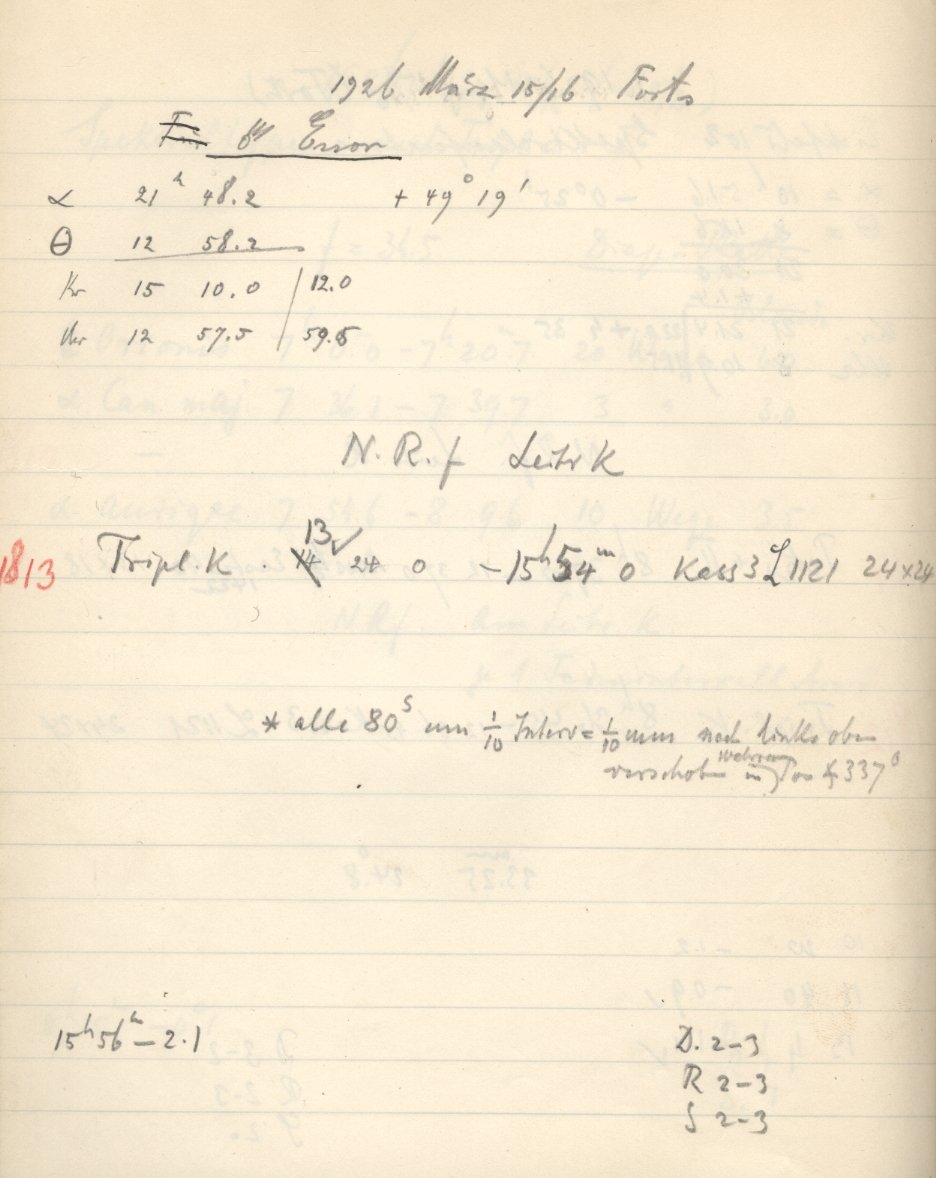 1926 März 15/16 Forts
Error
α 21h 48.2 + 49° 19'
Θ 12 58.2
Kr 15 10.0 | 12.0
Uhr 12 57.5 | 59.5
N.R.f Leitr K
1813 Tripl. K. 13 24 0 – 15h 54m 0 Kass 3 L 1121 24×24
* alle 80s um 1/10 Interv = 1/10 mm nach links oben
verschoben in Pos ∡ 337°
15h 56m – 2.1 D. 2–3
R 2–3
S 2–3